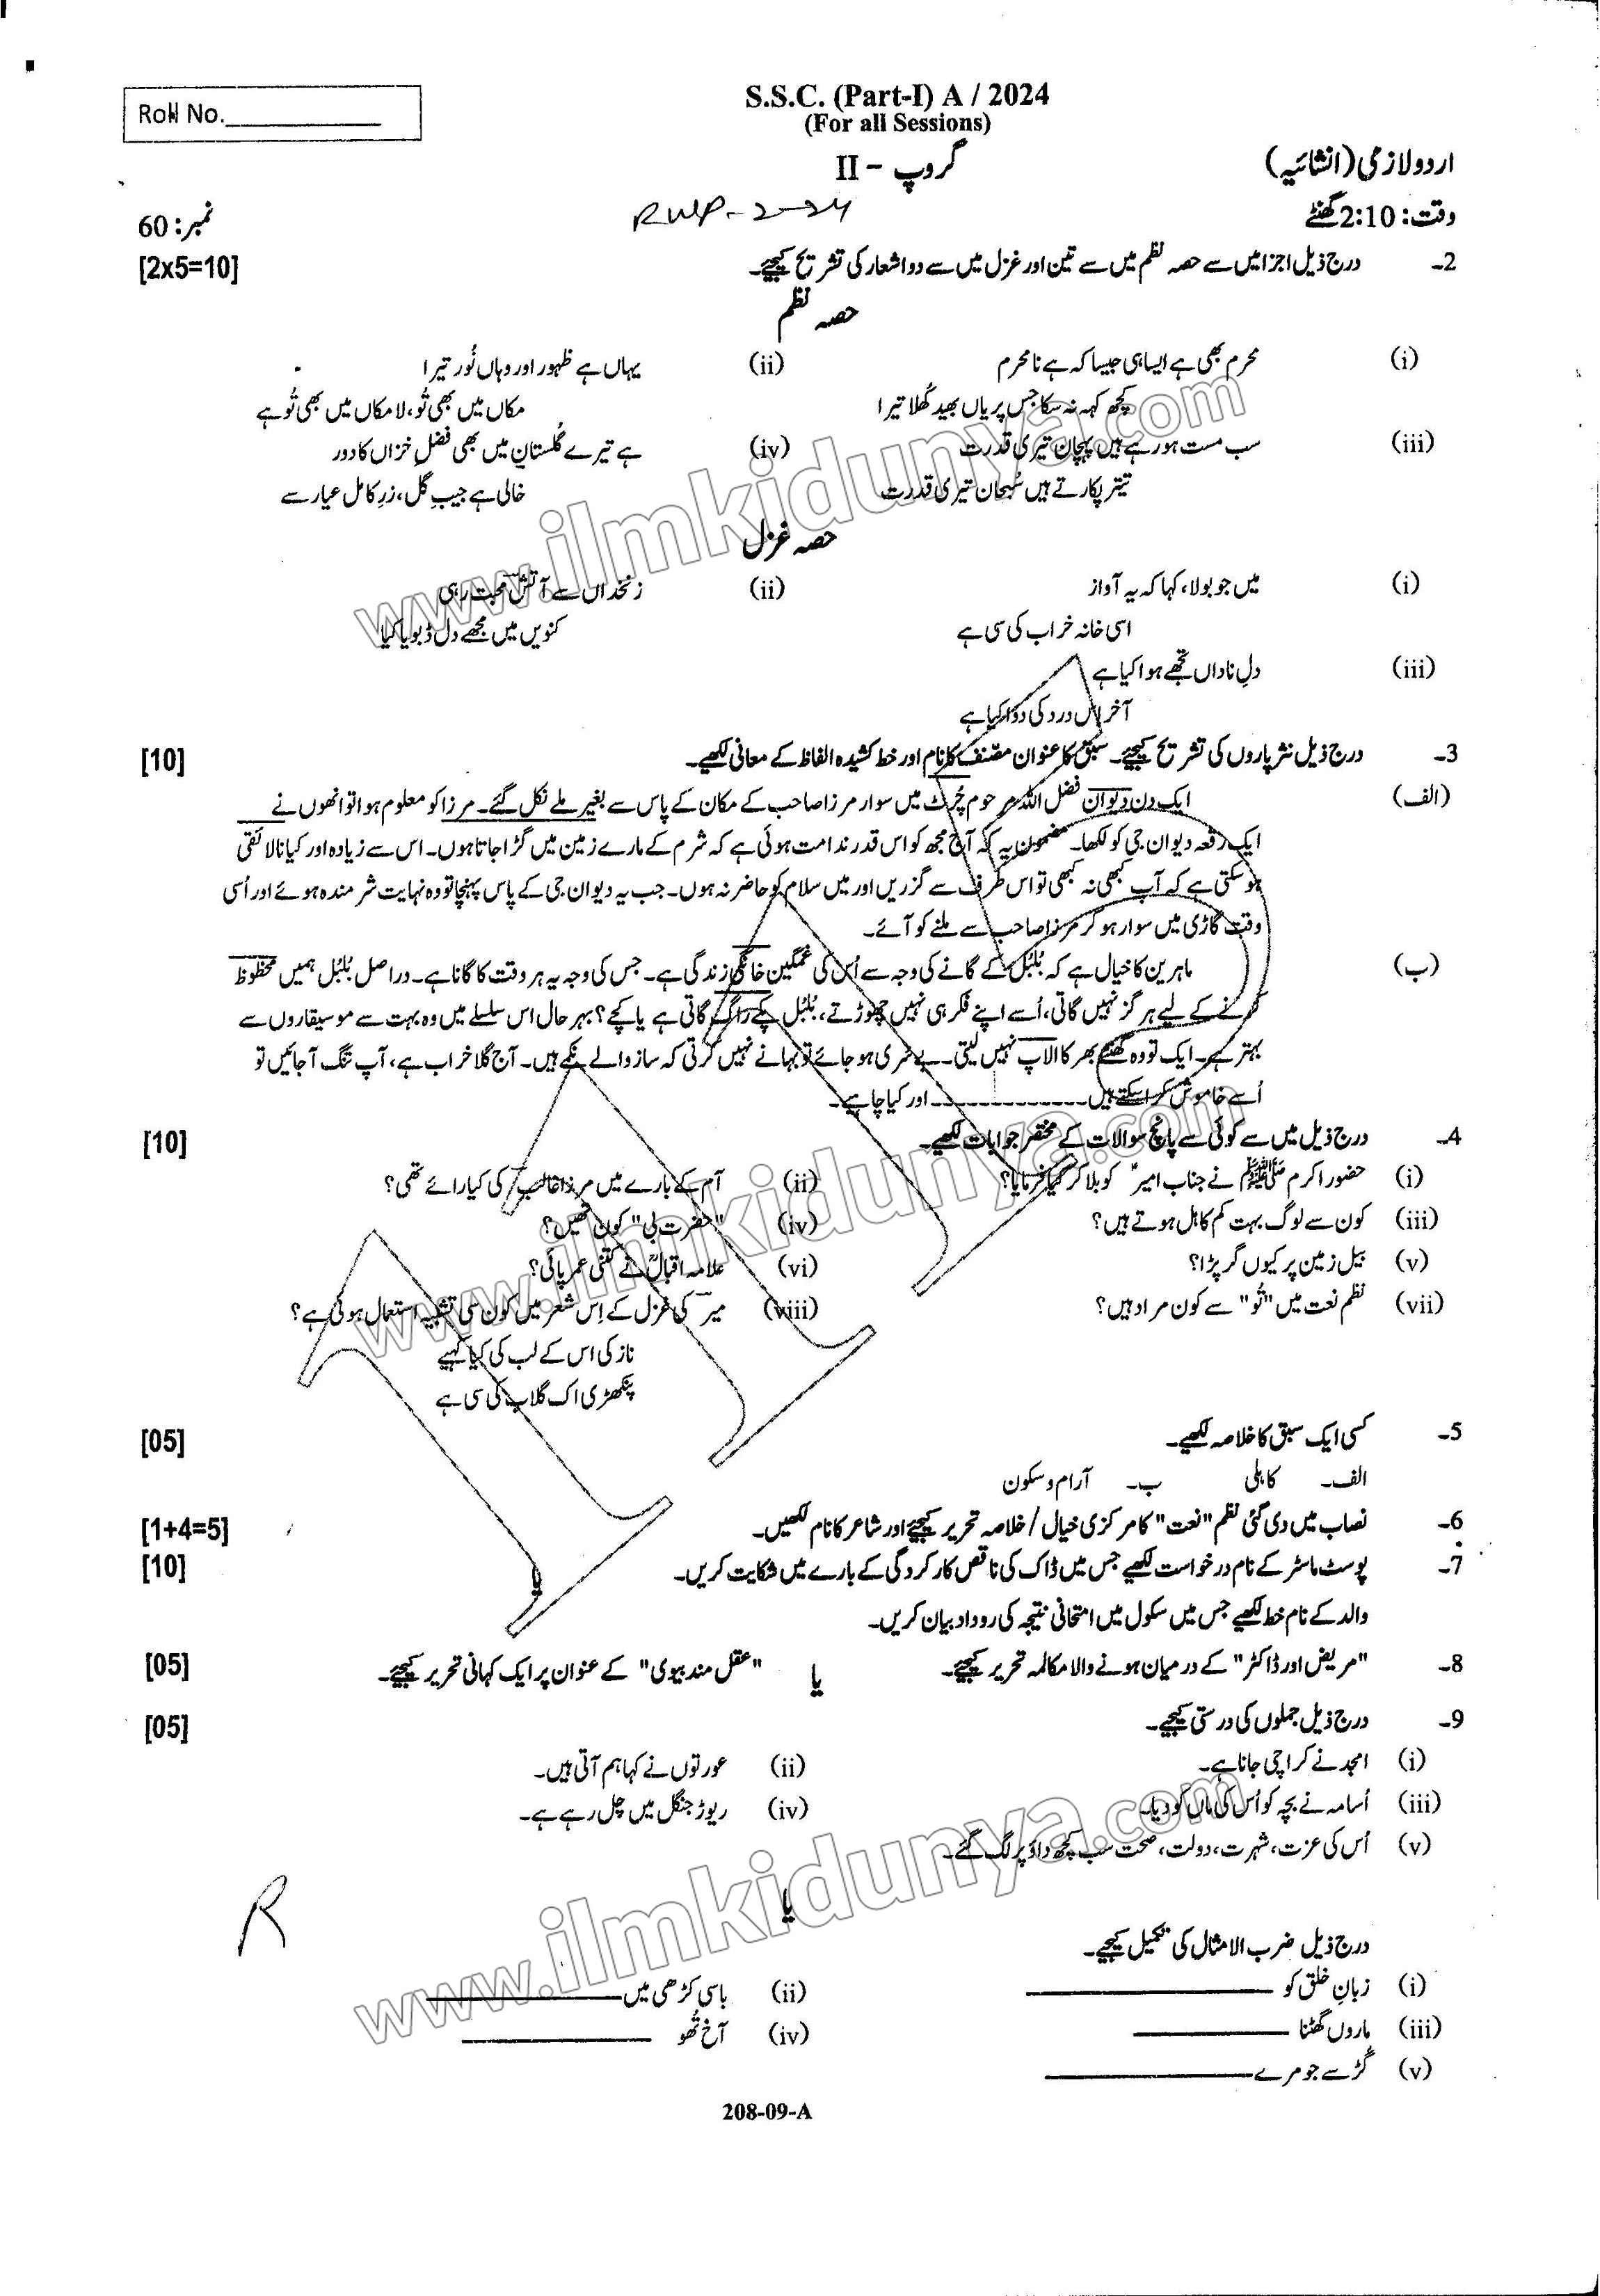 Roll No.____________
S.S.C. (Part-I) A / 2024
(For all Sessions)
اردو لازمی (انشائیہ)
گروپ - II
وقت: 2:10 گھنٹے
RWP-2-24
نمبر: 60
2- درج ذیل اجزا میں سے حصہ نظم میں سے تین اور غزل میں سے دو اشعار کی تشریح کیجیے۔ [2x5=10]
حصہ نظم
(i) محرم بھی ہے ایسا ہی جیسا کہ ہے نا محرم
کچھ کہہ نہ سکا جس پر یاں بھید کُھلا تیرا
(ii) یہاں ہے ظہور اور وہاں نُور تیرا
مکاں میں بھی تُو، لا مکاں میں بھی تُو ہے
(iii) سب مست ہو رہے ہیں پہچان تیری قدرت
تیتر پکارتے ہیں سُبحان تیری قدرت
(iv) ہے تیرے گُلستان میں بھی فضلِ خزاں کا دور
خالی ہے جیبِ گل، زرِ کامل عیار سے
حصہ غزل
(i) میں جو بولا، کہا کہ یہ آواز
اسی خانہ خراب کی سی ہے
(ii) زنخداں سے آتش محبت رہی
کنویں میں مجھے دل ڈبویا کیا
(iii) دلِ ناداں تجھے ہوا کیا ہے
آخر اس درد کی دوا کیا ہے
3- درج ذیل نثر پاروں کی تشریح کیجیے۔ سبق کا عنوان مصنف کا نام اور خط کشیدہ الفاظ کے معانی لکھیے۔ [10]
(الف) ایک دن دیوان فضل اللہ مرحوم چُرٹ میں سوار مرزا صاحب کے مکان کے پاس سے بغیر ملے نکل گئے۔ مرزا کو معلوم ہوا تو انھوں نے
ایک رقعہ دیوان جی کو لکھا۔ مضمون یہ کہ آج مجھ کو اس قدر ندامت ہوئی ہے کہ شرم کے مارے زمین میں گڑا جاتا ہوں۔ اس سے زیادہ اور کیا نالائقی
ہو سکتی ہے کہ آپ کبھی نہ کبھی تو اس طرف سے گزریں اور میں سلام کو حاضر نہ ہوں۔ جب یہ دیوان جی کے پاس پہنچا تو وہ نہایت شرمندہ ہوئے اور اُسی
وقت گاڑی میں سوار ہو کر مرزا صاحب سے ملنے کو آئے۔
(ب) ماہرین کا خیال ہے کہ بُلبُل کے گانے کی وجہ سے اُس کی غمگین خانگی زندگی ہے۔ جس کی وجہ یہ ہر وقت کا گانا ہے۔ دراصل بُلبُل ہمیں محظوظ
کرنے کے لیے ہرگز نہیں گاتی، اُسے اپنے فکر ہی نہیں چھوڑتے، بُلبُل پکے راگ گاتی ہے یا کچے؟ بہر حال اس سلسلے میں وہ بہت سے موسیقاروں سے
بہتر ہے۔ ایک تو وہ گھنٹے بھر کا الاپ نہیں لیتی۔ بے سُری ہو جائے تو بہانے نہیں کرتی کہ ساز والے نکمے ہیں۔ آج گلا خراب ہے، آپ تنگ آجائیں تو
اُسے خاموش کرا سکتے ہیں۔۔۔۔۔۔۔۔۔۔۔۔۔ اور کیا چاہیے۔
4- درج ذیل میں سے کوئی سے پانچ سوالات کے مختصر جوابات لکھیے۔ [10]
(i) حضور اکرم ﷺ نے جناب امیرؓ کو بلا کر کیا فرمایا؟
(ii) آم کے بارے میں مرزا غالب کی کیا رائے تھی؟
(iii) کون سے لوگ بہت کم کاہل ہوتے ہیں؟
(iv) "حضرت بی" کون تھیں؟
(v) بیل زمین پر کیوں گر پڑا؟
(vi) علامہ اقبالؒ نے کتنی عمر پائی؟
(vii) نظم نعت میں "تُو" سے کون مراد ہیں؟
(viii) میرؔ کی غزل کے اِس شعر میں کون سی تشبیہ استعمال ہوئی ہے؟
نازکی اس کے لب کی کیا کہیے
پنکھڑی اک گلاب کی سی ہے
5- کسی ایک سبق کا خلاصہ لکھیے۔ [05]
الف۔ کاہلی ب۔ آرام و سکون
6- نصاب میں دی گئی نظم "نعت" کا مرکزی خیال / خلاصہ تحریر کیجیے اور شاعر کا نام لکھیں۔ [1+4=5]
7- پوسٹ ماسٹر کے نام درخواست لکھیے جس میں ڈاک کی ناقص کارکردگی کے بارے میں شکایت کریں۔ یا [10]
والد کے نام خط لکھیے جس میں سکول میں امتحانی نتیجہ کی روداد بیان کریں۔
8- "مریض اور ڈاکٹر" کے درمیان ہونے والا مکالمہ تحریر کیجیے۔ یا "عقل مند بیوی" کے عنوان پر ایک کہانی تحریر کیجیے۔ [05]
9- درج ذیل جملوں کی درستی کیجیے۔ [05]
(i) امجد نے کراچی جانا ہے۔
(ii) عورتوں نے کہا ہم آتی ہیں۔
(iii) اُسامہ نے بچہ کو اُس کی ماں کو دیا۔
(iv) ریوڑ جنگل میں چل رہے ہے۔
(v) اُس کی عزت، شہرت، دولت، صحت سب کچھ داؤ پر لگ گئے۔
یا
درج ذیل ضرب الامثال کی تکمیل کیجیے۔
(i) زبانِ خلق کو ____________
(ii) باسی کڑھی میں ____________
(iii) ماروں گھٹنا ____________
(iv) آخ تُھو ____________
(v) گُڑ سے جو مرے ____________
R
208-09-A
www.ilmkidunya.com
www.ilmkidunya.com
www.ilmkidunya.com